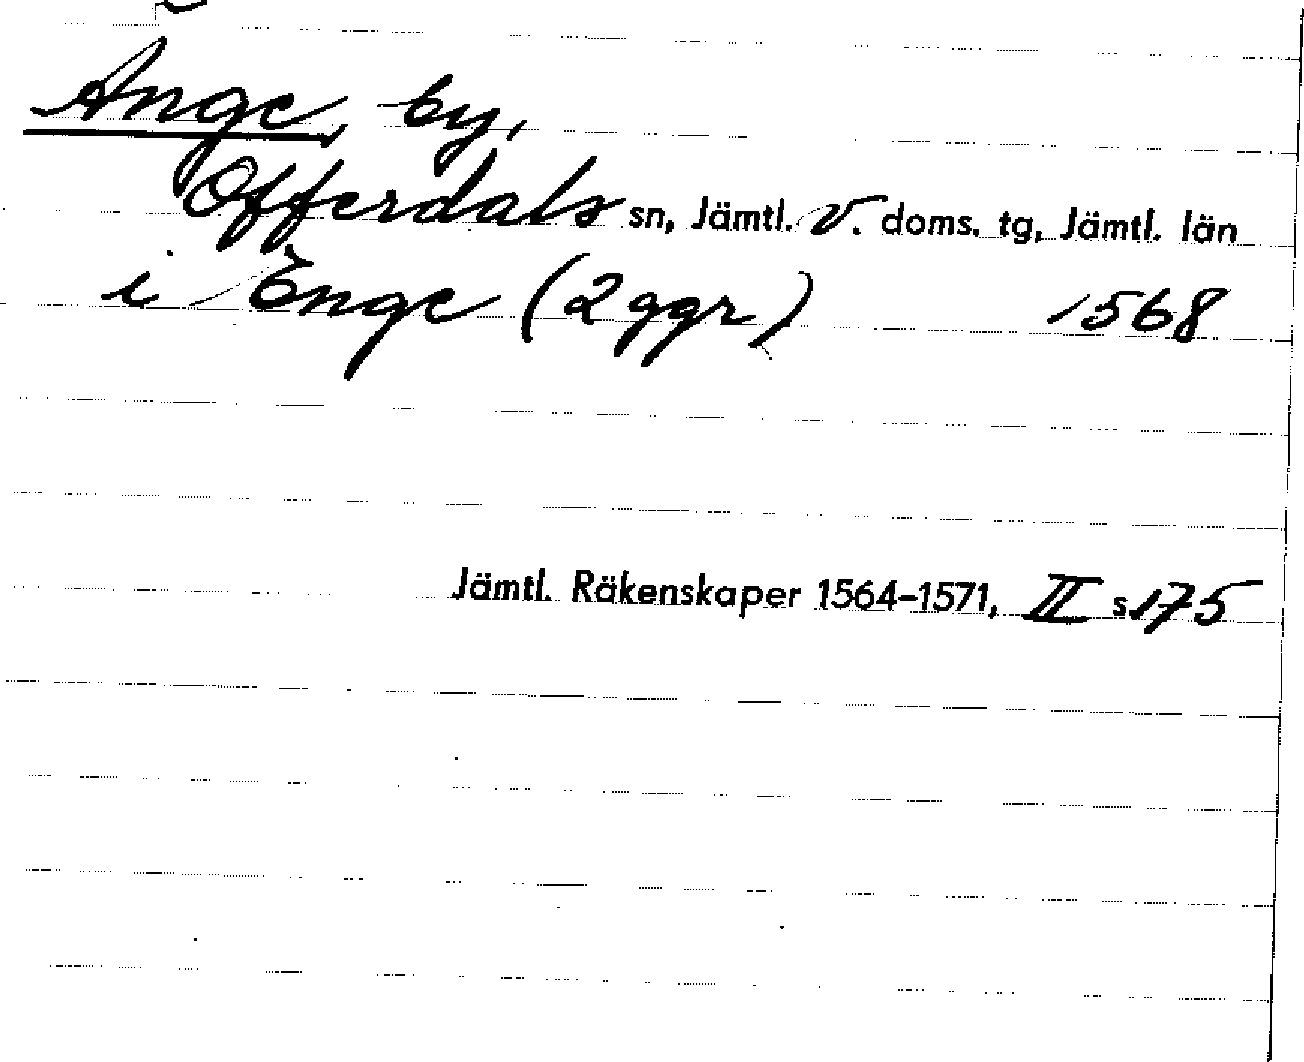 Ånge, by,
Offerdals sn, Jämtl. V. doms. tg, Jämtl. län
i Enge (2 ggr) 1568
Jämtl. Räkenskaper 1564-1571, II s 175